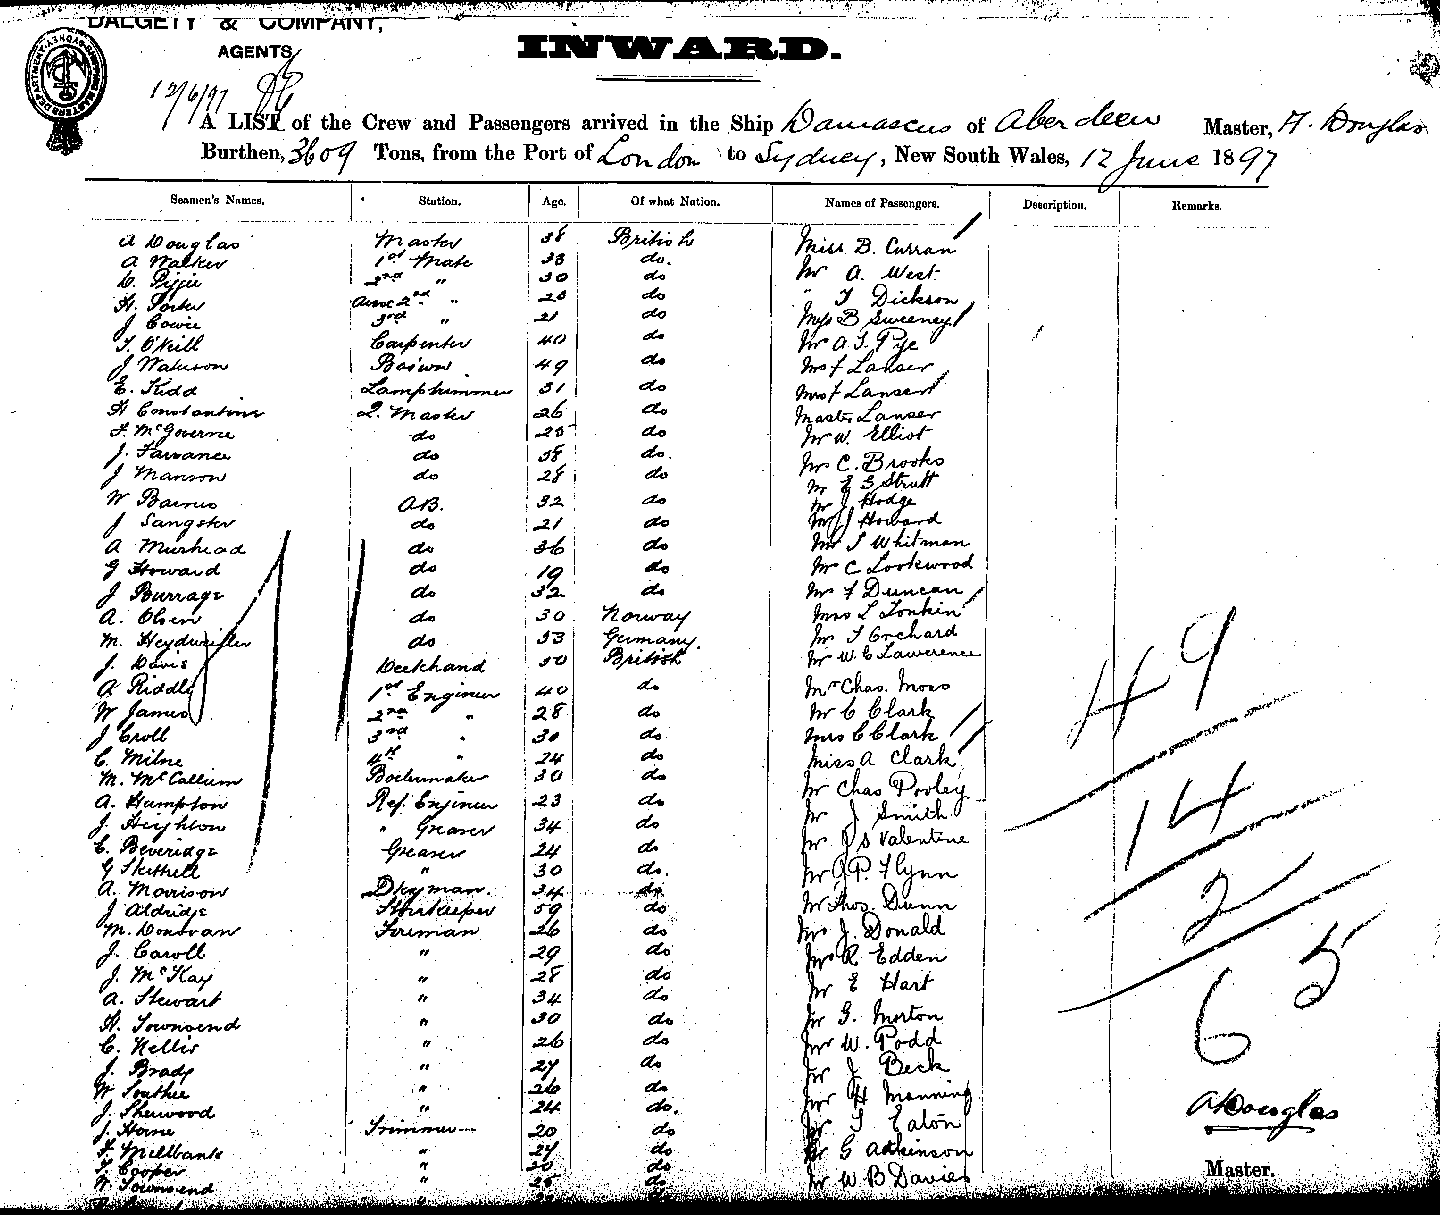 DALGETY & COMPANY,
AGENTS
INWARD.
12/6/97
A LIST of the Crew and Passengers arrived in the Ship Damascus of Aberdeen Master, A. Douglas
Burthen, 3609 Tons, from the Port of London to Sydney, New South Wales, 12 June 1897
Seamen's Names. Station. Age. Of what Nation. Names of Passengers. Description. Remarks.
A Douglas Master 38 British Miss B. Curran
A Walker 1st Mate 33 do. Mr A. West
30 do " T Dickson
H. Porter 2nd " do Miss B Sweeney
J Cowie 3rd " 21 do Mr A. T. Pye
T. O'Neill Carpenter 40 do Lanser
J Waterson Bosun 49 do Lanser
E. Kidd Lamptrimmer 31 do Master Lanser
H Constantine Q. Master 26 do Mr W. Elliot
F. McGoverne do 25 do Mr C. Brooks
J. Farrance do 38 do. Mr E G Strutt
J Manson do 28 do Mr J Hodge
W Barnes A.B. 32 do Mr J Howard
J Sangster do 21 do Mr T Whitman
A Muirhead do 36 do Mr C Lookwood
G Howard do 19 do Mr F Duncan
J Burrage do 32 do Mrs L Lonkin
A. Olsen do 30 Norway Mr T Orchard
M. do 53 Germany. Mr W. C Lawerence
J. Davis Deckhand 50 British Mr Chas. Moss
A Riddle 1st Engineer 40 do Mr C Clark
W James 2nd " 28 do Mrs C Clark
J Croll 3rd " 30 do Miss A Clark
C. Milne 4th " 24 do Mr Chas Pooley
M. McCallum Boilermaker 30 do Mr J Smith
A. Hampton Ref. Engineer 23 do Mr J S Valentine
J. Heighton " Greaser 34 do Mr J. P. Flynn
C. Beveridge Greaser 24 do Mr Thos. Dunn
G Skethell " 30 do. Mr J. Donald
A. Morrison Dkyman. 34 do Mr R. Edden
J Aldridge Storekeeper 59 do Mr E Hart
M. Donovan Fireman 26 do Mr G. Morton
J. Caroll " 29 do Mr W. Podd
J. McKay " 28 do Mr J Beck
A. Stewart " 34 do Mr H Manning
H. Townsend " 30 do Mr T Eaton
C. Nellis " 26 do Mr G Atkinson
J. Brady " 27 do Mr W B Davies
W Southee " 26 do
J. Sherwood " 24 do.
J. Horne Trimmer 20 do
F. Millbank " 24 do
T. Cooper " 20 do
W Townsend " 25 do
49
14
2
65
A Douglas
Master.